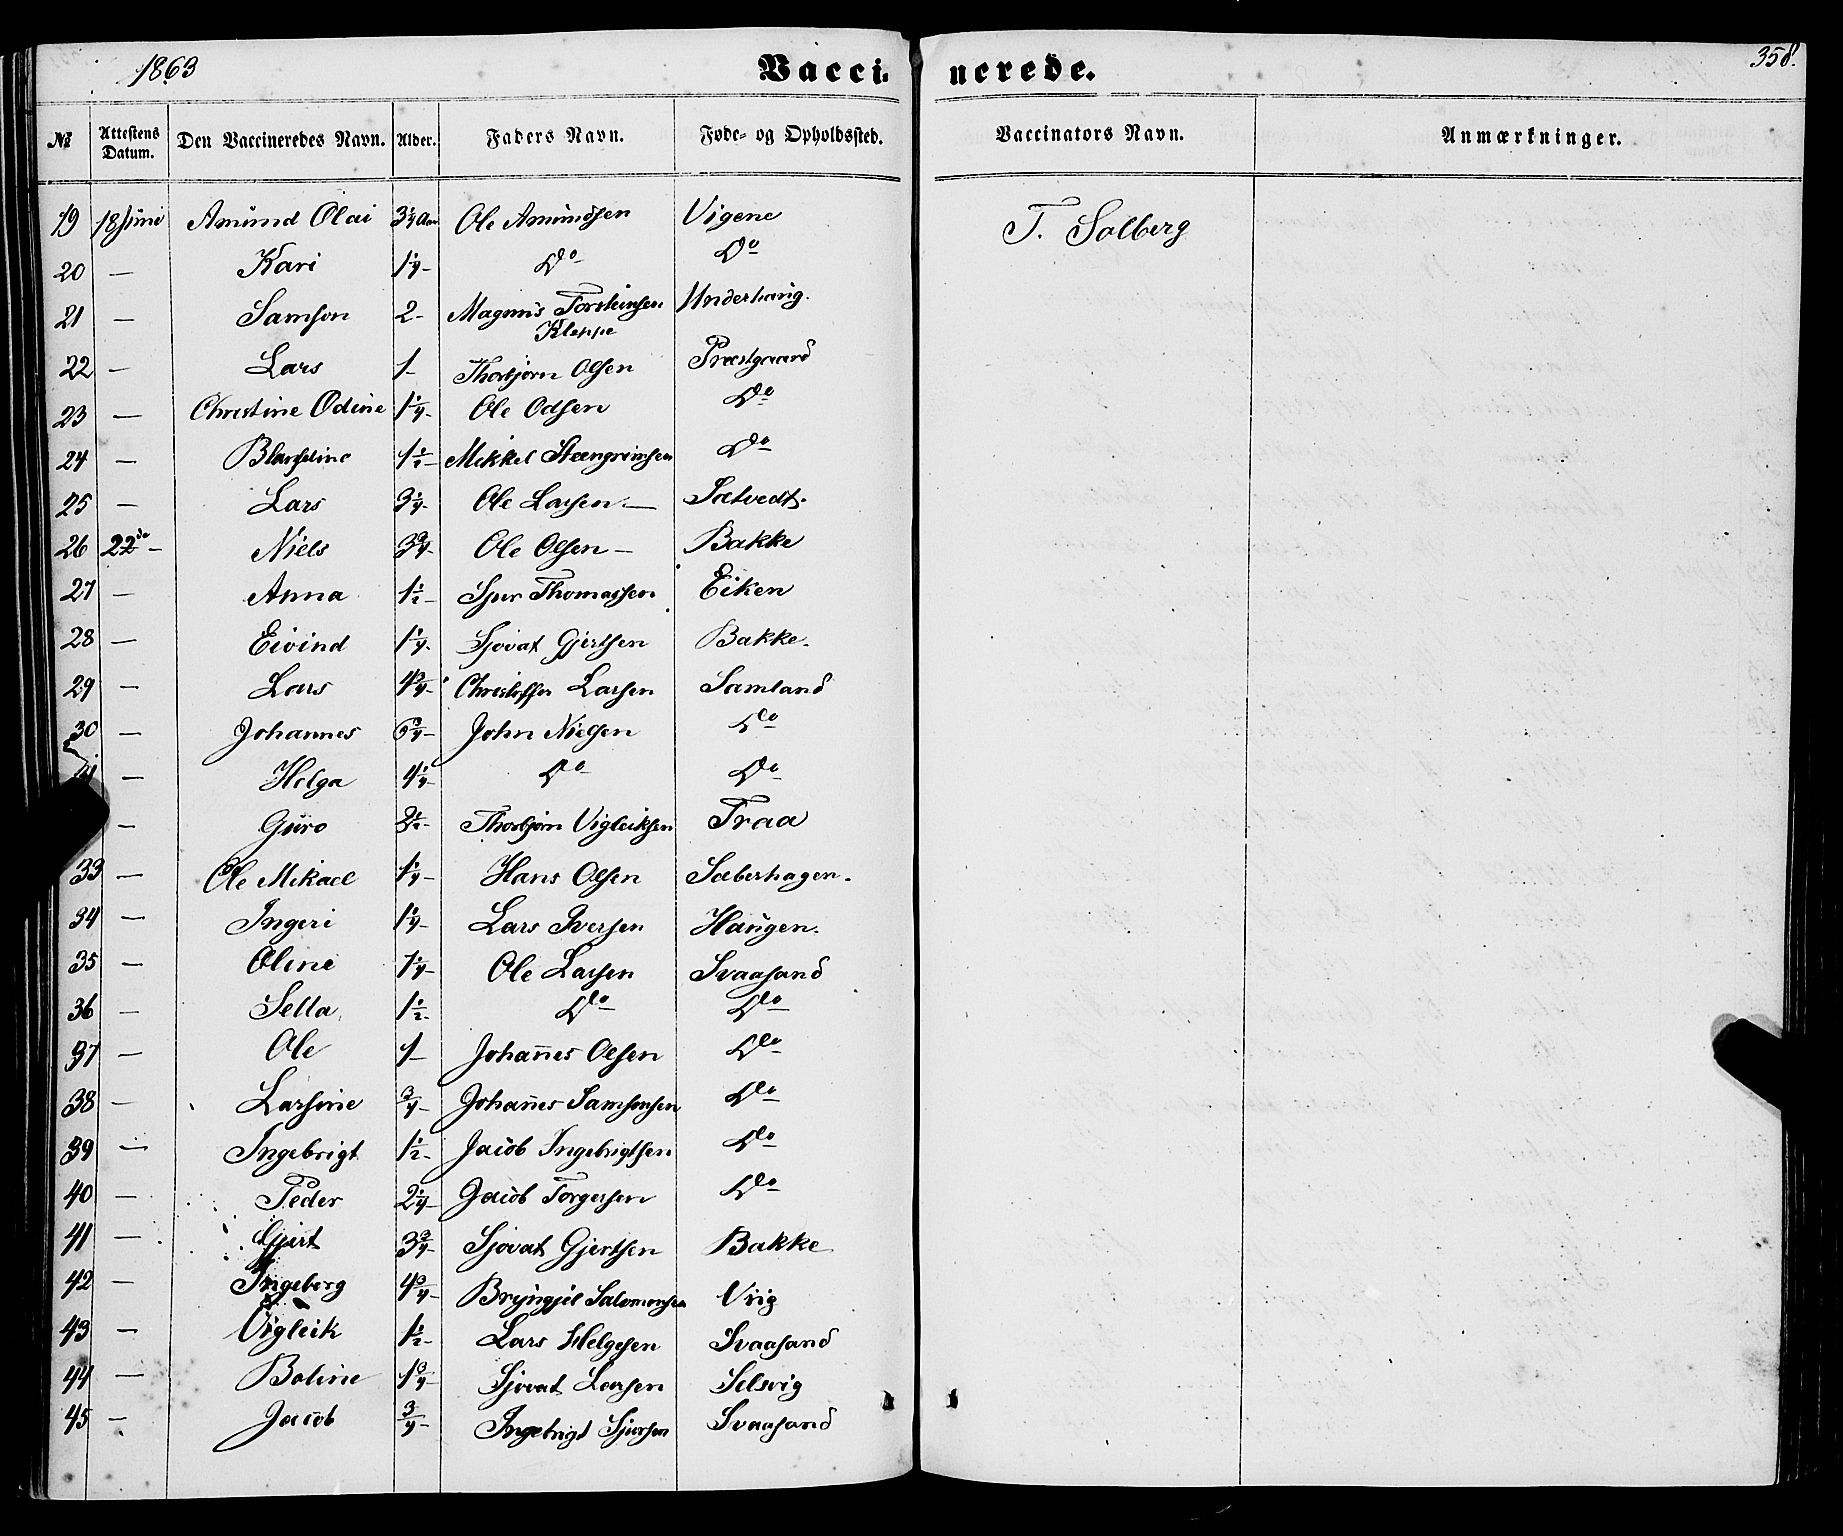 1863 Vacci- nerede. 358.
№ Attestens Datum. Den Vaccineredes Navn. Alder. Faders Navn. Føde- og Opholdssted. Vaccinators Navn. Anmærkninger.
19 18 Juni Amund Olai 3 1/4 Aar Ole Amundsen Vigene T. Solberg
20 — Kari 1 1/4 - Do Do
21 — Samson 2 - Magnus Torsteinsen Kleppe Underhaug.
22 — Lars 1 - Thorbjørn Olsen Præstgaard
23 — Christine Odine 1 1/4 - Ole Odsen Do
24 — 1 1/2 - Mikkel Steengrimsen Do
25 — Lars 3 1/4 - Ole Larsen — Sætvedt.
26 22de - Niels 3 3/4 - Ole Olsen — Bakke
27 — Anna 1 1/2 - Sjur Thomassen Eiken
28 — Eivind 1 1/4 - Sjovat Gjertsen Bakke.
29 — Lars 4 3/4 - Christoffer Larsen Samland
30 — Johannes 6 3/4 - John Nielsen Do
— Helga 4 1/4 - Do Do
— Guro Thorbjørn Vigleiksen Traa
33 — Ole Mikael 1 1/4 - Hans Olsen Sæberhagen.
34 — Ingeri 1 1/4 - Lars Iversen Haugen.
35 — Oline 1 1/4 - Ole Larsen Svaasand
36 — Sella 1 1/2 - Do Do
37 — Ole 1 - Johan̄es Olsen Do
38 — Larsine 3/4 - Johan̄es Samsonsen Do
39 — Ingebrigt 1 1/2 - Jacob Ingebrigtsen Do
40 — Peder 2 1/4 - Jacob Torgersen Do
41 — Gjert 3 3/4 - Sjovat Gjertsen Bakke
42 — Ingeberg 4 3/4 - Bryngjel Salomonsen Viig
43 — Vigleik 1 1/2 - Lars Helgesen Svaasand
44 — Boline 1 3/4 - Sjovat Larsen Selsvig
45 — Jacob 3/4 - Ingebrigt Sjursen Svaasand